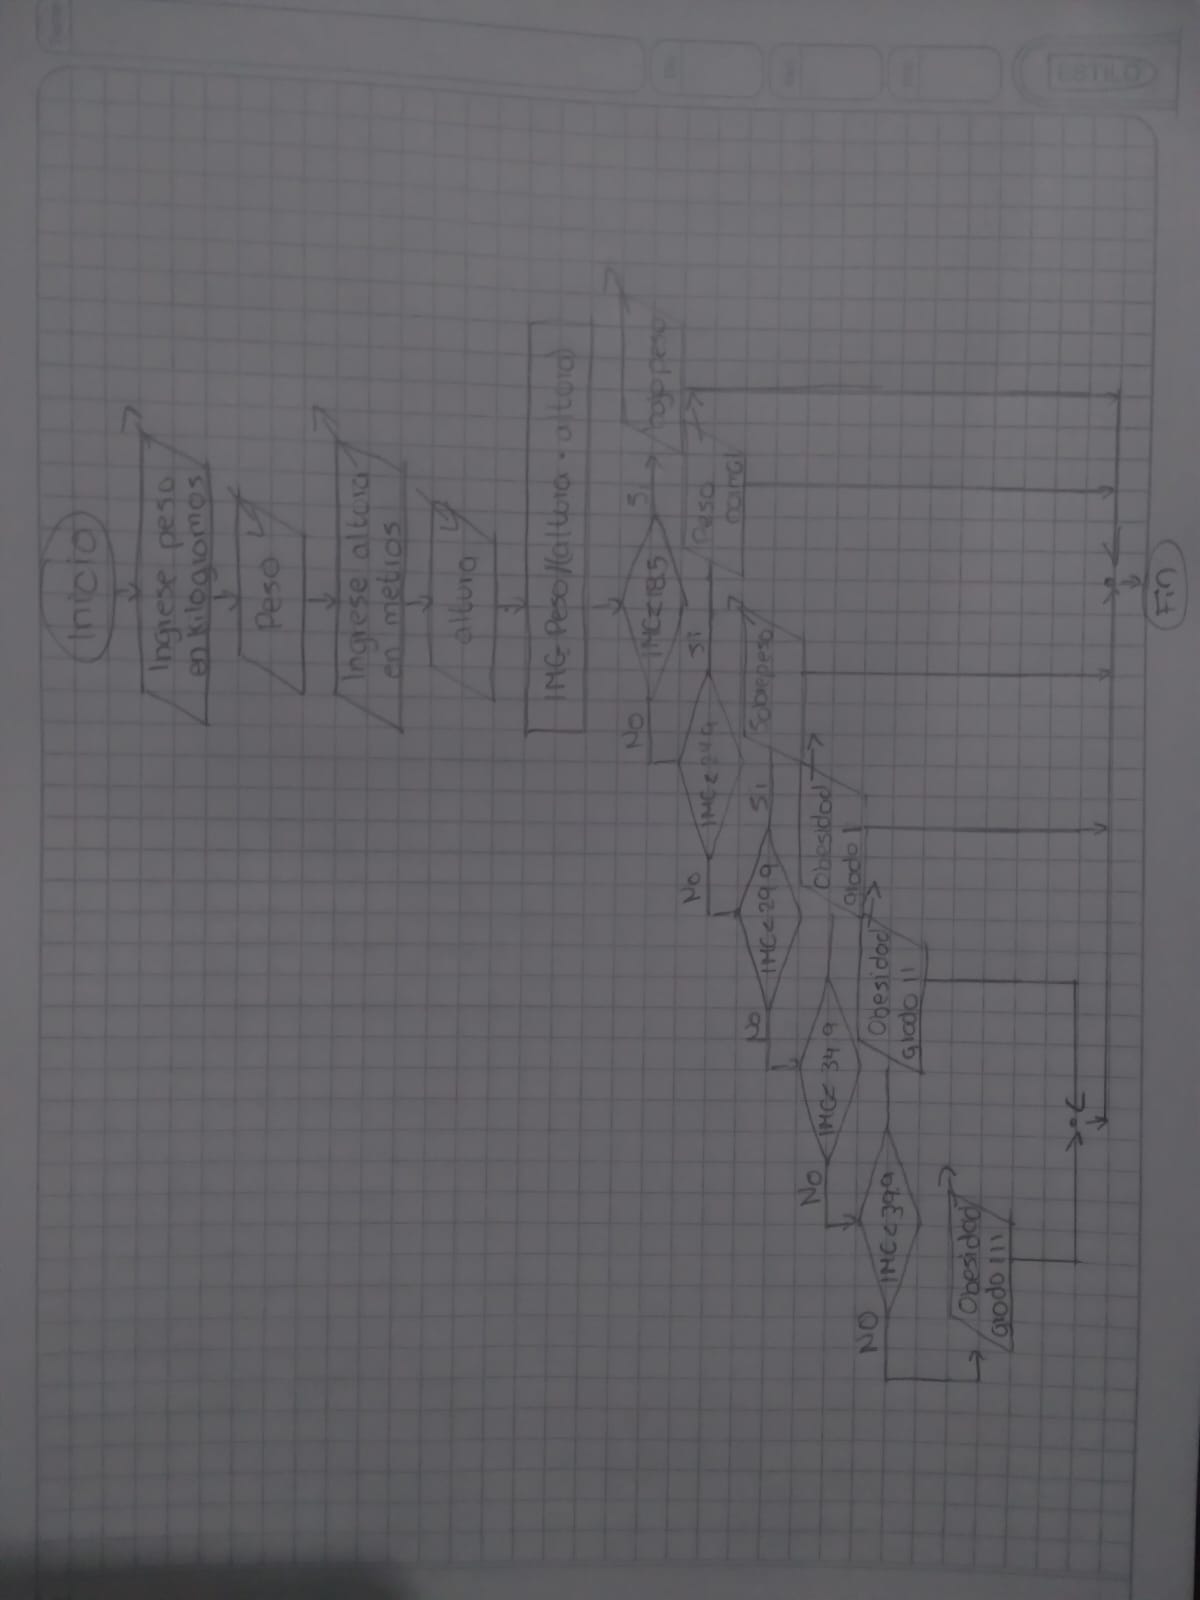 ESTILO
Inicio
Ingrese peso
en kilogramos
Peso
Ingrese altura
en metros
altura
IMC=Peso/(altura * altura)
IMC<18.5
Si
No
Bajo peso
IMC<24.9
Si
No
Peso
normal
IMC<29.9
Si
No
Sobrepeso
IMC<34.9
No
Obesidad
grado I
IMC<39.9
NO
Obesidad
grado II
Obesidad
grado III
Fin